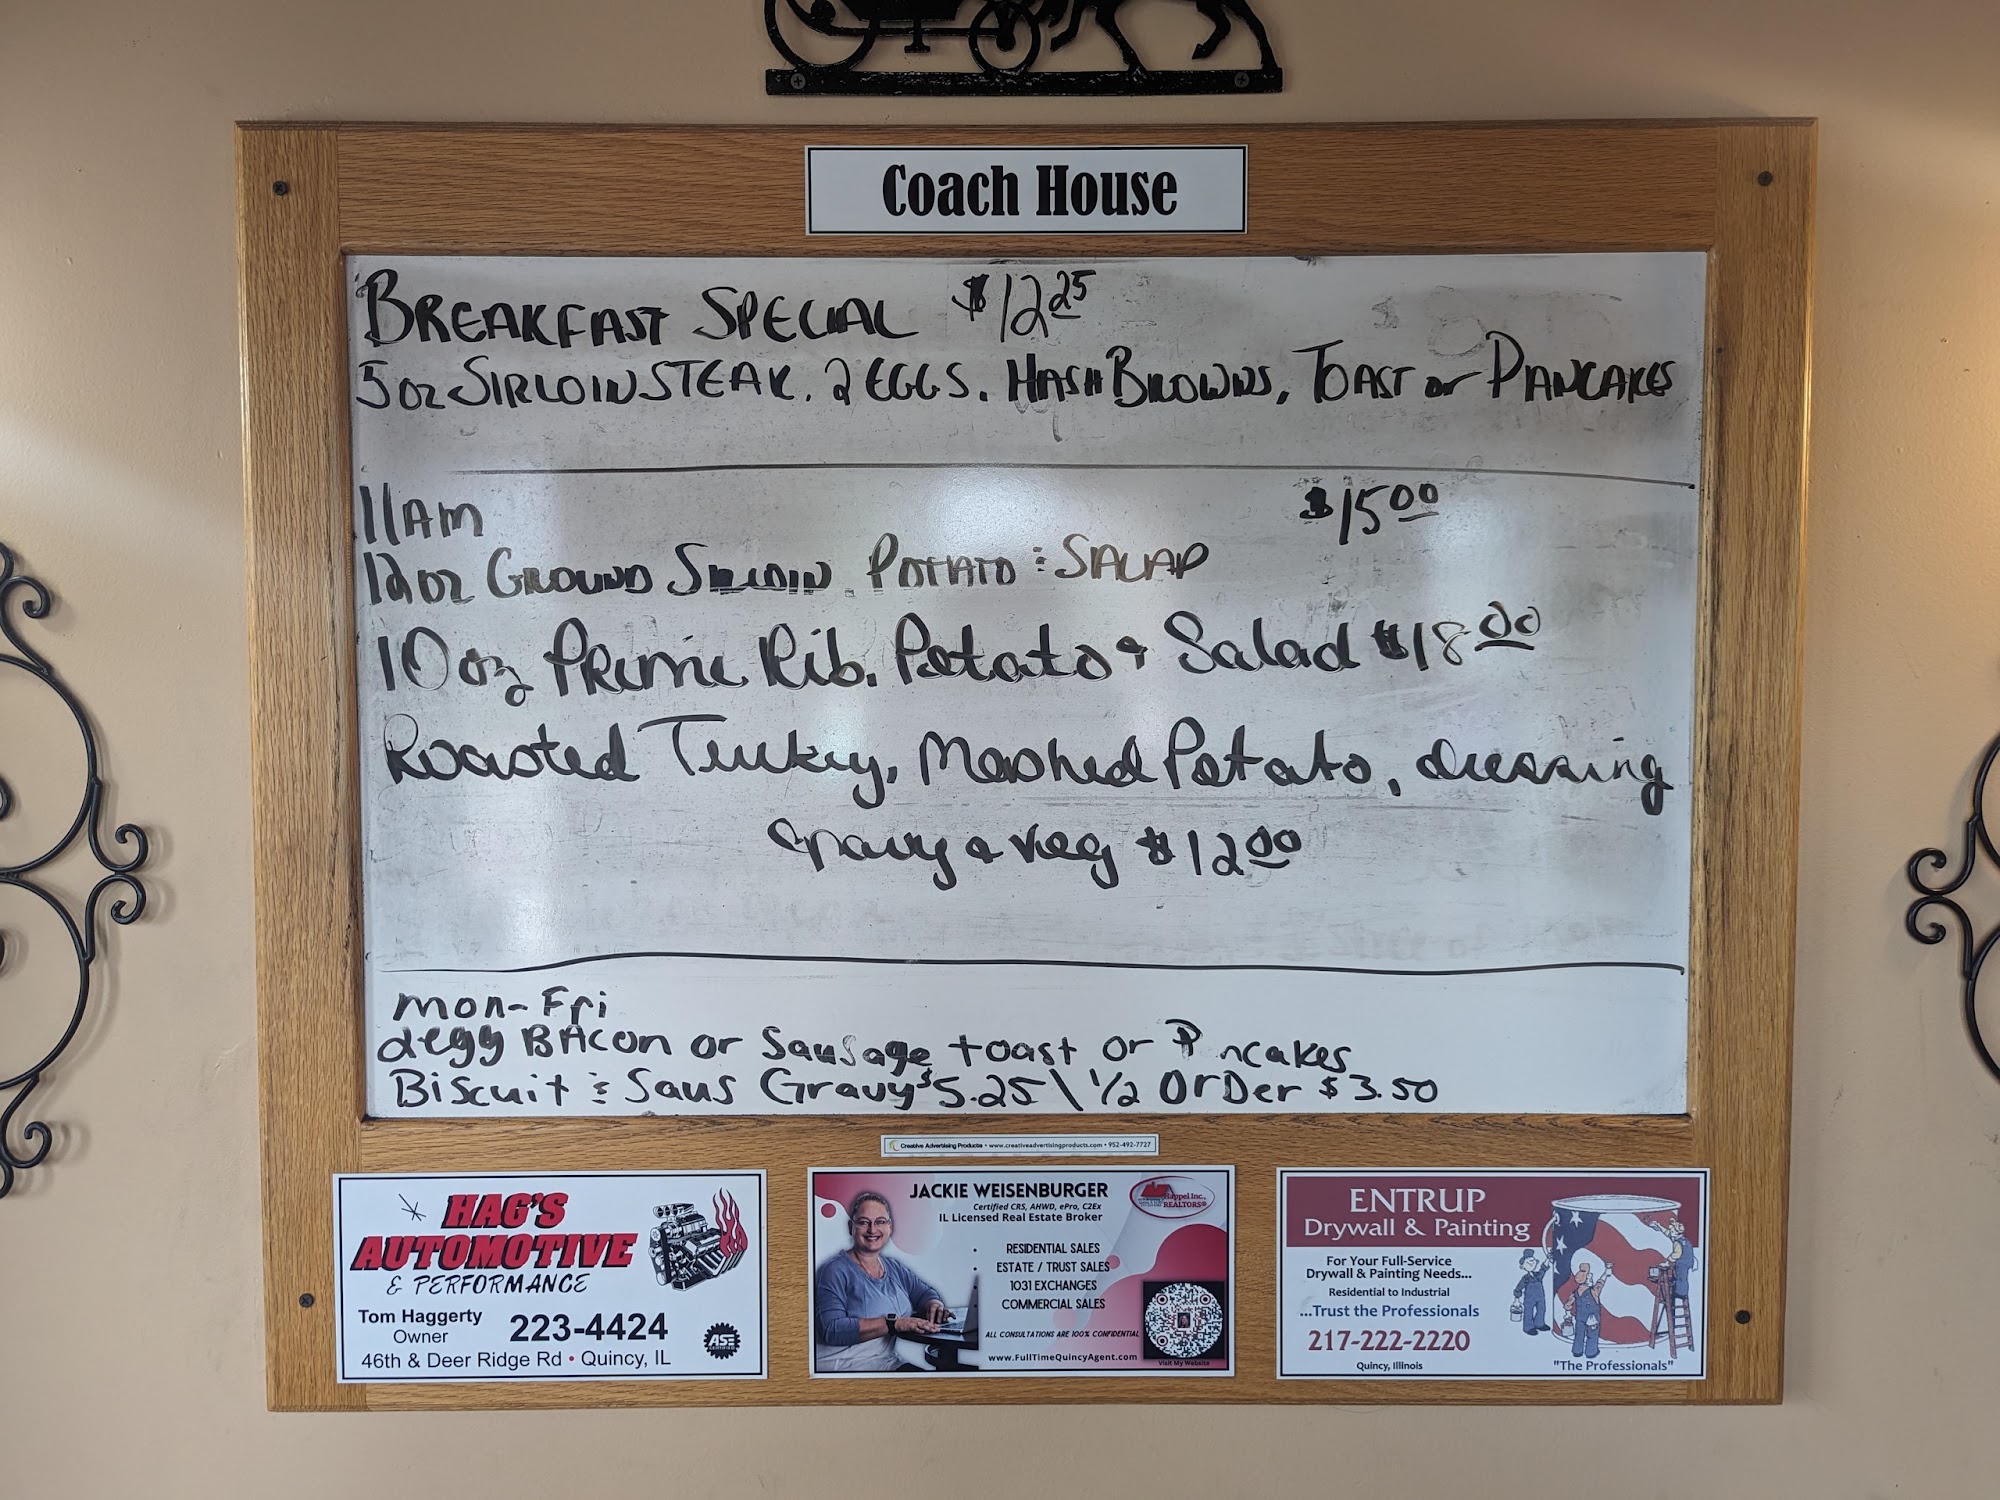 Coach House
BREAKFAST SPECIAL $12 25
5 oz SIRLOIN STEAK, 2 EGGS, HASH BROWNS, TOAST or PANCAKES
11AM $15 00
12 oz GROUND SIRLOIN, POTATO & SALAD
10 oz Prime Rib, Potato & Salad $18 00
Roasted Turkey, Mashed Potato, dressing
gravy & veg $12 00
Mon-Fri
2 egg BACon or Sausage toast or P ncakes
Biscuit & Saus Gravy $5.25 \ 1/2 OrDer $3.50
Creative Advertising Products • www.creativeadvertisingproducts.com • 952-492-7727
HAG'S
AUTOMOTIVE
& PERFORMANCE
Tom Haggerty
Owner
223-4424
46th & Deer Ridge Rd • Quincy, IL
ASE
JACKIE WEISENBURGER
Certified CRS, AHWD, ePro, C2Ex
IL Licensed Real Estate Broker
Happel Inc.,
REALTORS®
• RESIDENTIAL SALES
• ESTATE / TRUST SALES
1031 EXCHANGES
COMMERCIAL SALES
ALL CONSULTATIONS ARE 100% CONFIDENTIAL
www.FullTimeQuincyAgent.com
Visit My Website
ENTRUP
Drywall & Painting
For Your Full-Service
Drywall & Painting Needs...
Residential to Industrial
...Trust the Professionals
217-222-2220
Quincy, Illinois
"The Professionals"